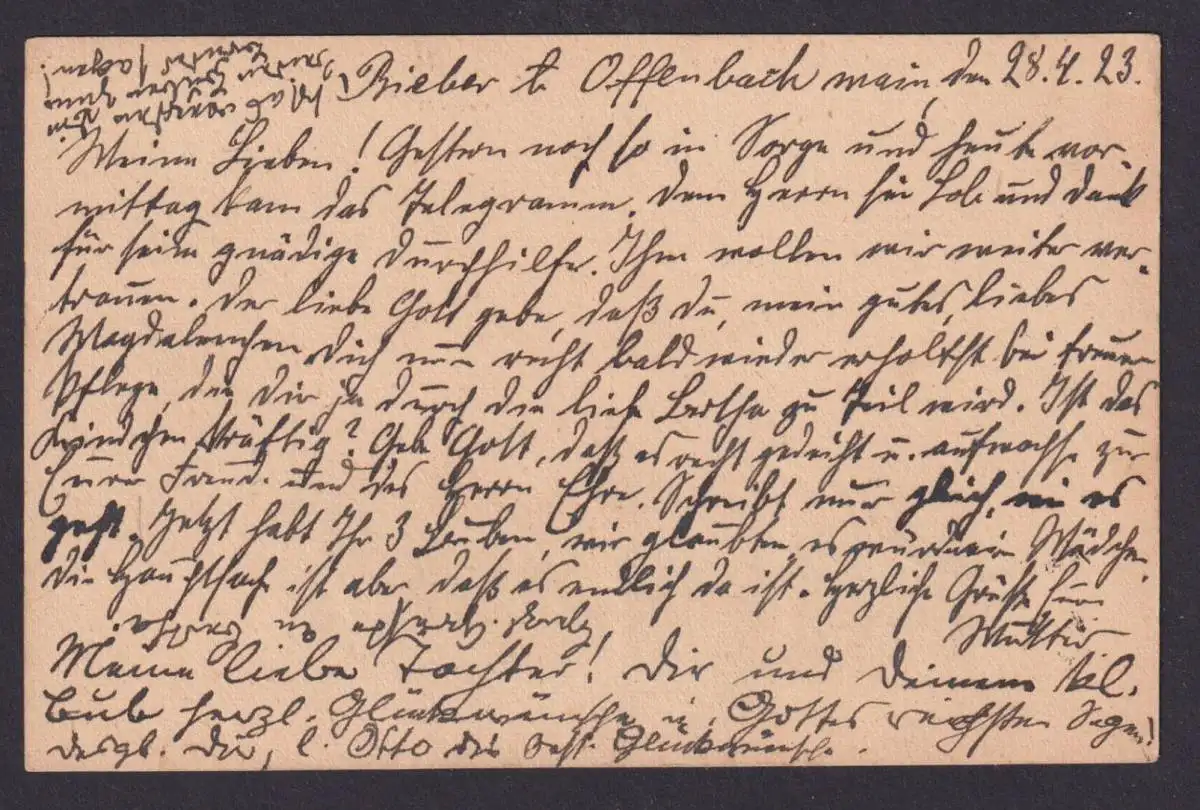 Bieber b. Offenbach Main, den 28.4.23.
Meine Lieben! Gestern noch so in Sorge und heute vor-
mittag kam das Telegramm. Dem Herrn sei Lob und Dank
für seine gnädige Durchhilfe. Ihm wollen wir weiter ver-
trauen. Der liebe Gott gebe, daß du, mein gutes, liebes
Magdalenchen dich nun recht bald wieder erholest bei treuer
Pflege, die dir ja durch die liebe Bertha zu Teil wird. Ist das
Kindchen kräftig? Gebe Gott, daß es recht gedeiht u. aufwachse zur
Eurer Freud. und des Herrn Ehre. Schreibt nur gleich, wie es
geht. Jetzt habt Ihr 3 Buben, wir glaubten es würde ein Mädchen
die Hauptsache ist aber daß es endlich da ist. Herzliche Grüße Eure
Mutter
Meine liebe Tochter! Dir und Deinem kl.
Bub herzl. Glückwünsche u. Gottes reichsten Segen!
desgl. Dir, l. Otto die best. Glückwünsche.